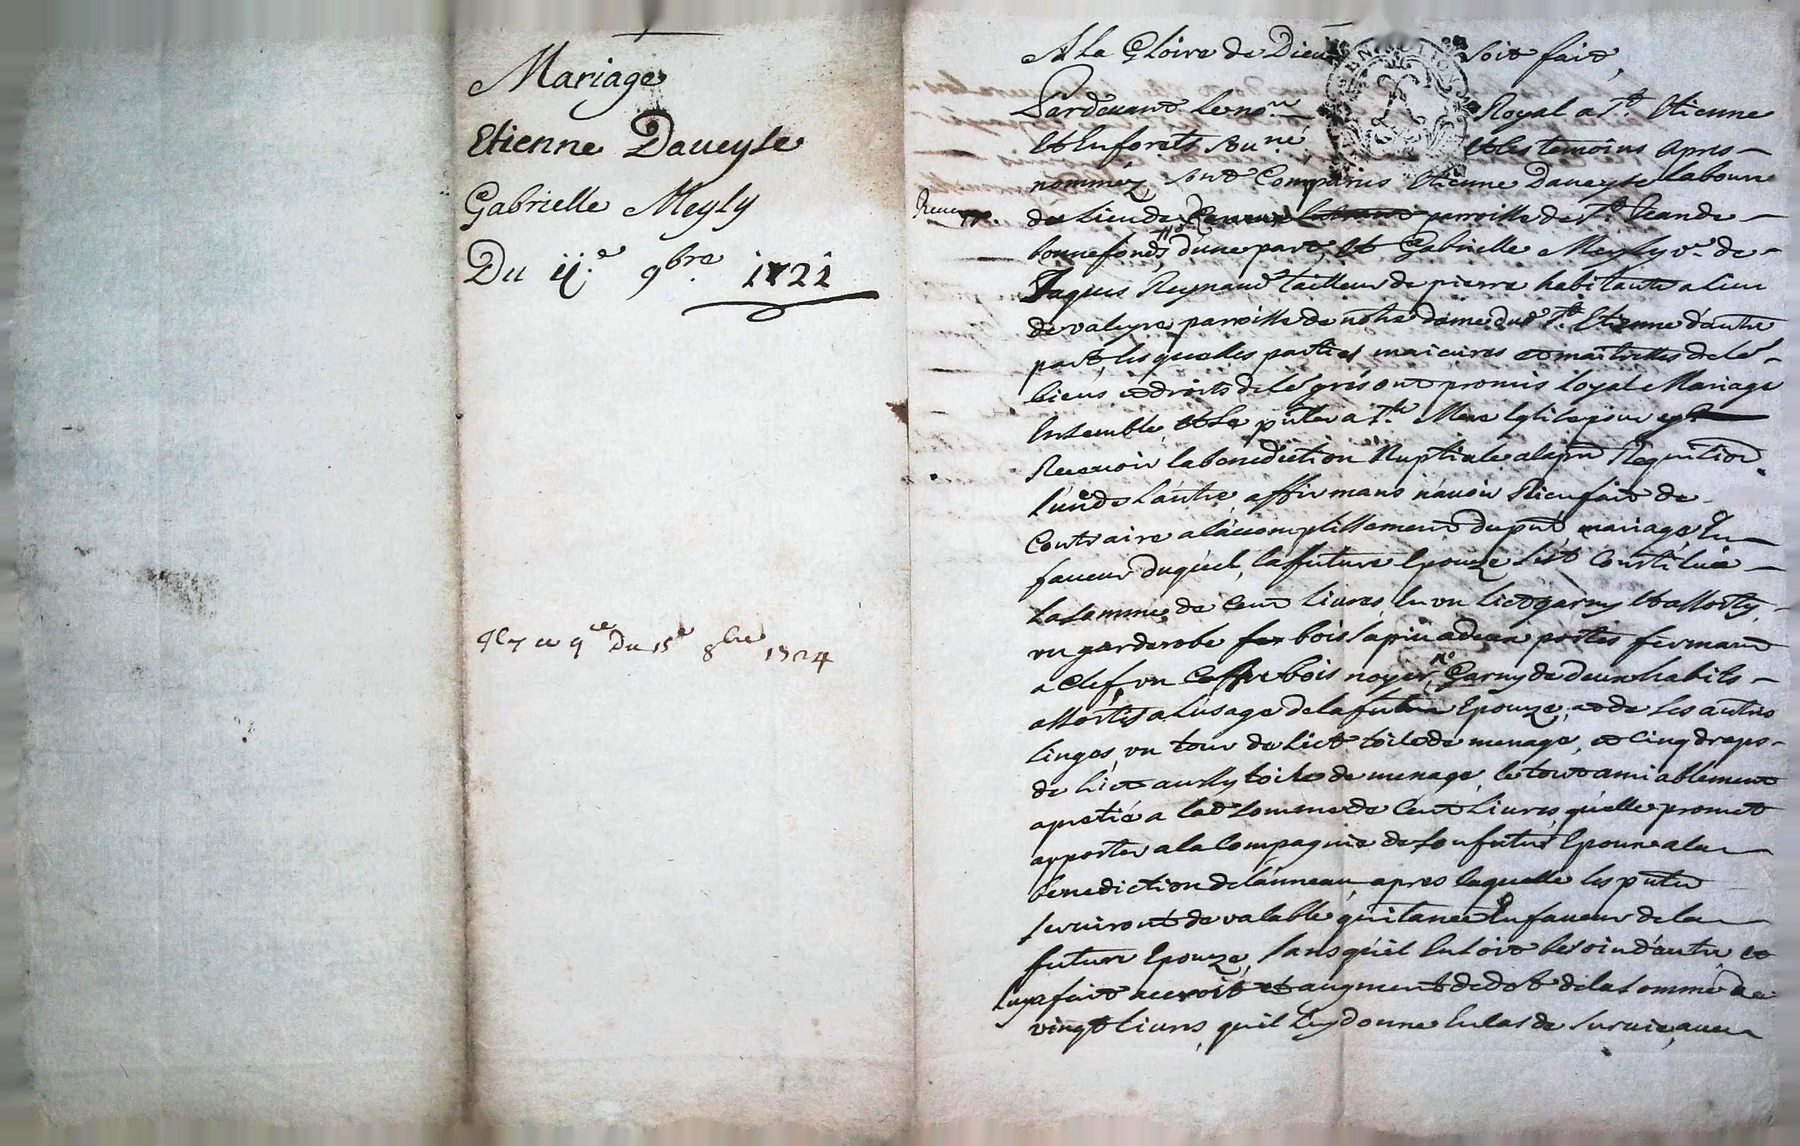 Mariage
Etienne Daveyse
Gabrielle Meyly
Du 11.e 9bre. 1721
Du 15e 8bre 1724
A la Gloire de Dieu soit fait,
Pardevant le no.re Royal a St. Etienne
Et en forets sou.né Et les temoins apres
nommez, sont Comparus Etienne Daveyse laboure
du lieu de parroisse de St. Jean de
bonnefonds, d'une part, Et Gabrielle Meyly v.e de
Jaques Reynaud tailleur de pierre habitante a lieu
de valeyre parroisse de notre dame dud St. Etienne d'autre
part, lesquelles parties maieures et maitresses de les
biens et droits de les gres ont promis loyal Mariage
Ensemble, et se pnter a Ste. Mere Eglise pour
Recevoir la benediction Nuptiale a la pre Requition
l'un de l'autre, affirmans n'avoir Rien fait de
Contraire a l'acomplissement du pnt mariage En
faveur duquel, la future Epouze s'est Constituée
La somme de Cent livres, En un lict garny Et assorty,
un garderobe bois sapin a deux portes fermant
a Clef, un Coffre bois noyer, Garny de deux habits
assortis a l'usage de la future Epouze, et de ses autres
linges, un tour de lict toile de menage, et Cinq draps
de lict aussy toile de menage, le tout amiablement
apretié a lad somme de Cent Livres, qu'elle promet
apporter a la Compagnie de son futur Epoux a la
benediction de l'anneau, apres laquelle les pntes
serviront de valable quitance En faveur de la
future Epouze, sans qu'il En soit besoin d'autre et
Luy a fait accroit et augment de dot de la somme de
vingt livres, qu'il luy donne En cas de survie, avec